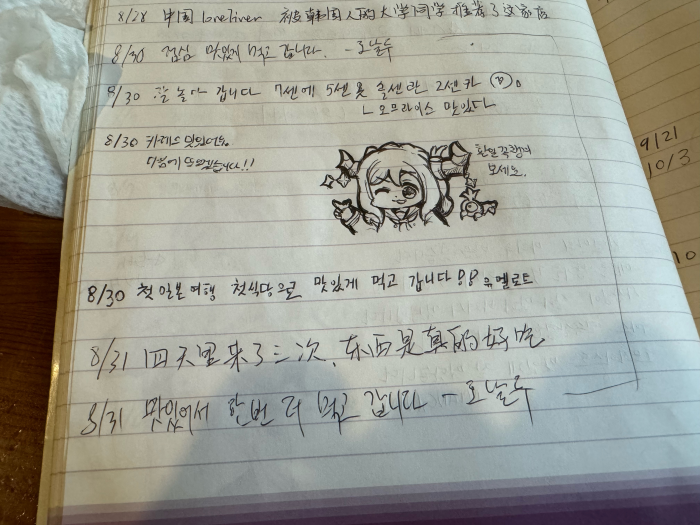 8/28 中国 loneliner 被韩国人的大学同学推荐了这家店
8/30 점심 맛있게 먹고 갑니다. - 로날두
8/30 잘 놀다 갑니다 7센에 5센 2센카
ㄴ 오므라이스 맛있다
8/30 카레도 맛있어요.
다음에 또 오겠습니다!!
보세요.
8/30 첫 일본여행 첫식당으로 맛있게 먹고 갑니다!! 멜로트
8/31 四天里来了三次, 东西是真的好吃
8/31 맛있어서 한번 더 먹고 갑니다 - 로날두
9/21
10/3
10